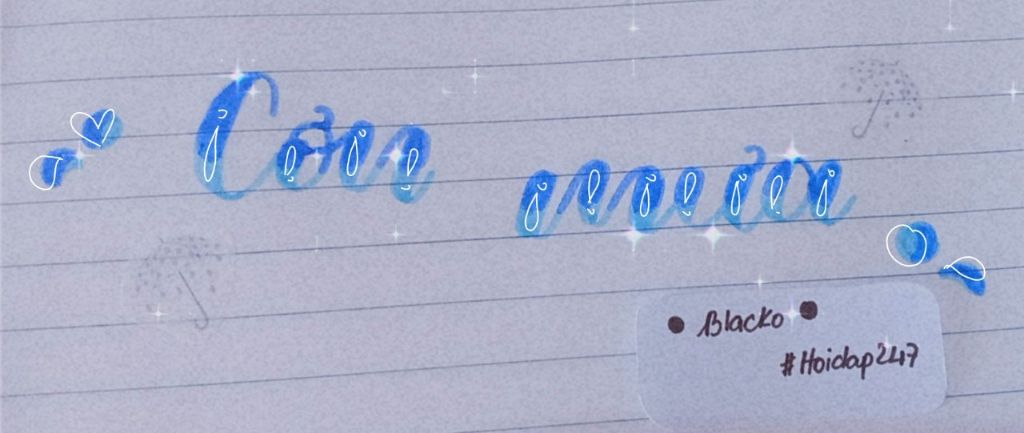 Cơn mưa
• Blacko •
#Hoidap247